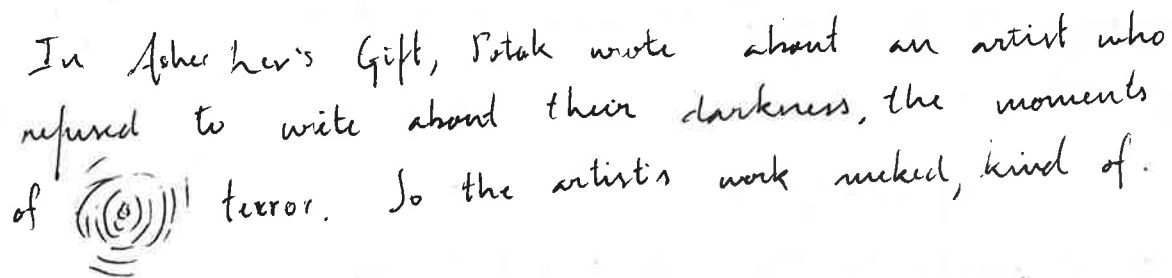 In Asher Lev's Gift, Potok wrote about an artist who
refused to write about their darkness, the moments
of terror. So the artist's work sucked, kind of.